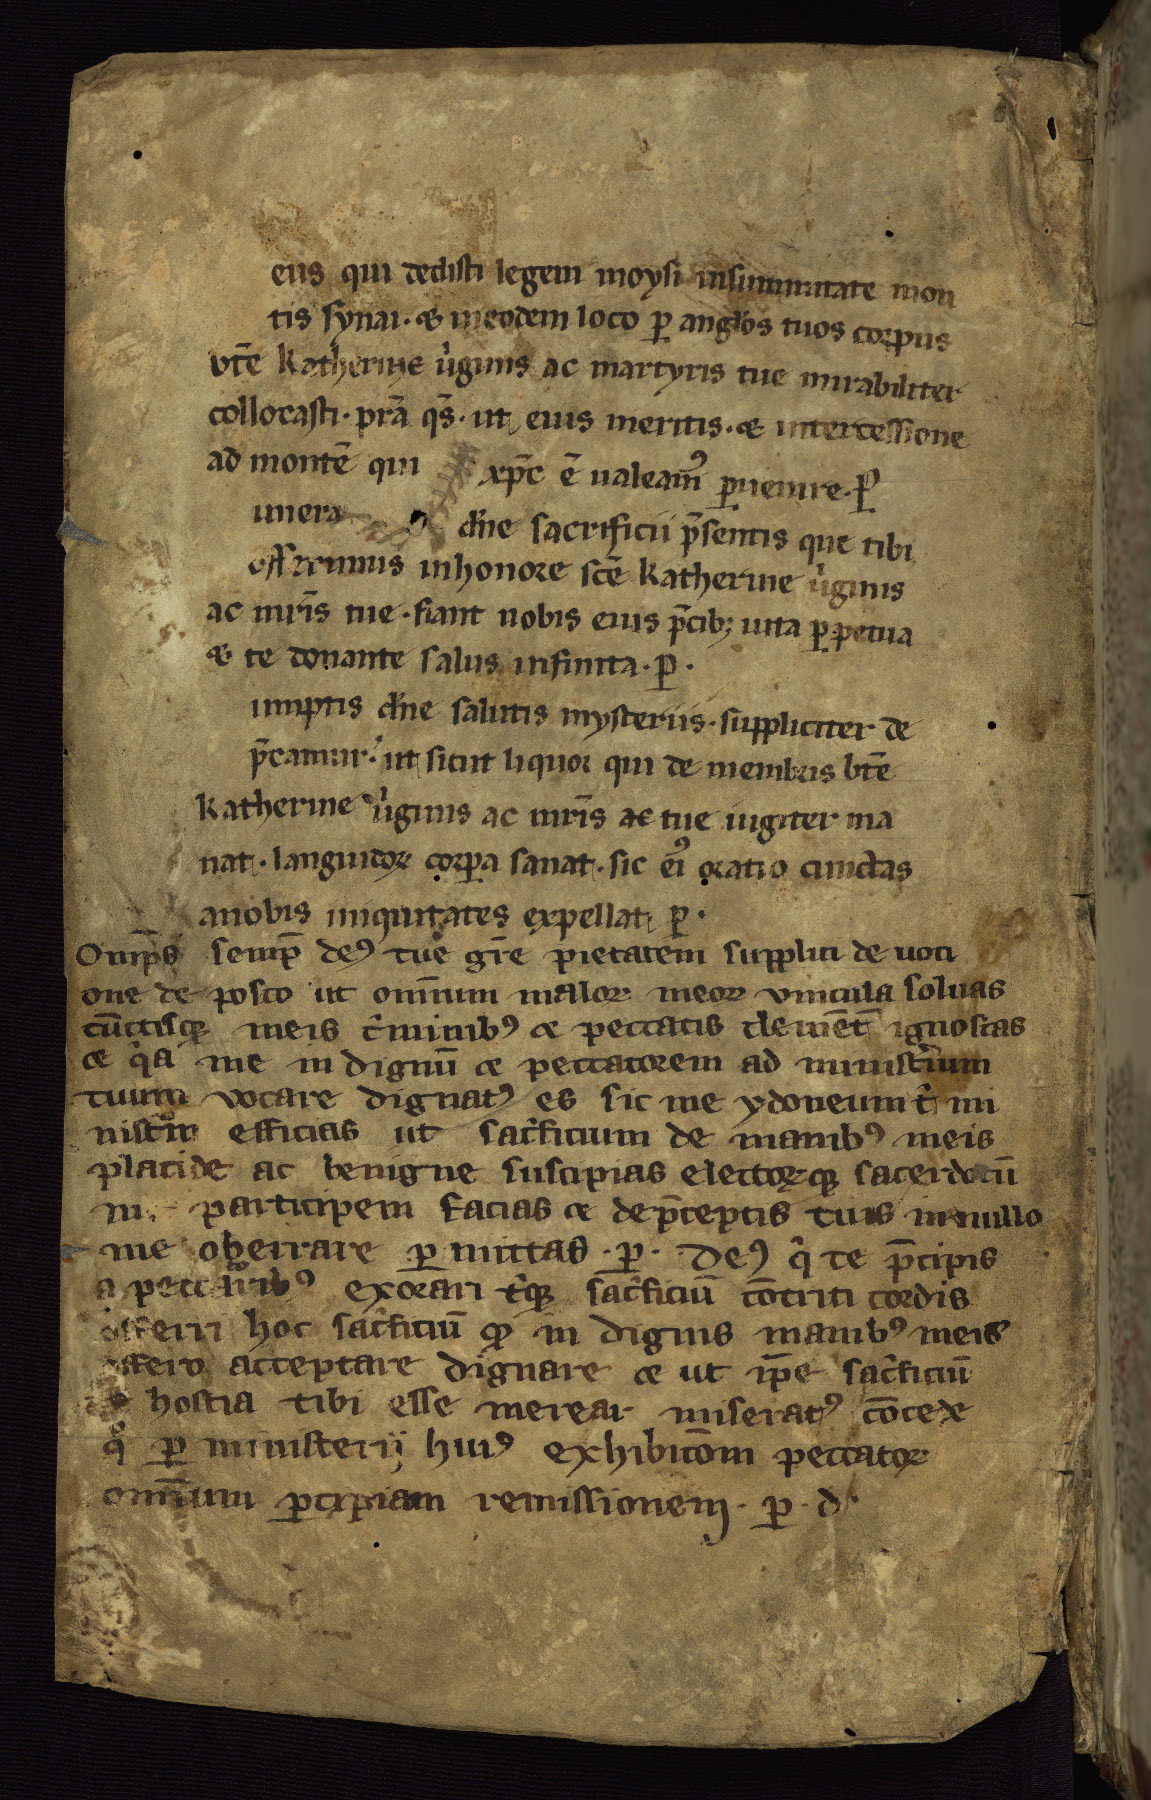 eus qui dedisti legem moysi insummitate mon
tis synai · & ineodem loco ꝑ anglos tuos corpus
btē katherine uͥginis ac martyris tue mirabiliter
collocasti · prā qs̄ · ut eius meritis · & intercessione
ad montē qui xp̄c ē ualeamꝰ ꝑuenire · ꝑ
unera dn̄e sacrificii p̄sentis que tibi
offerimus inhonore scē katherine uͥginis
ac mr̄is tue · fiant nobis eius p̄cibꝫ uita ꝑpetua
& te donante salus infinita · ꝑ ·
umptis dn̄e salutis mysteriis · suppliciter de
p̄camur · ut sicut liquor qui de membris btē
katherine uͥginis ac mr̄is ac tue iugiter ma
nat · languidoꝝ corꝑa sanat · sic eiꝰ oratio cunctas
anobis iniquitates expellat ꝑ ·
Omp̄s semꝑ deꝰ tue gr̄e pietatem supplici de uoti
one de posco ut omīum maloꝝ meoꝝ vincula soluas
cūctisqꝫ meis cͥminibꝰ & peccatis clemēt̄ ignoscas
& qͥa me in dignū & peccatorem ad ministͥium
tuum vocare dignatꝰ es sic me ydoneum tͥ mi
nistrū efficias ut sacͥficium de manibꝰ meis
placide ac benigne suscipias electoꝝqꝫ sacerdotū
participem facias & dep̄ceptis tuis in nullo
me oberrare ꝑ mittas · ꝑ · Deꝰ qͥ te p̄cipis
a peccatͥibꝰ exorari tͥqꝫ sacͥficiū cōtriti cordis
offerri hoc sacͥficiū qͦ in dignis manibꝰ meis
offero acceptare dignare & ut ip̄e sacͥficiū
& hostia tibi esse merear miseratꝰ cōcede
qͦ ꝑ ministerij huiꝰ exhibitōm peccatoꝝ
omīum ꝑcipiam remissionem · ꝑ · d ·